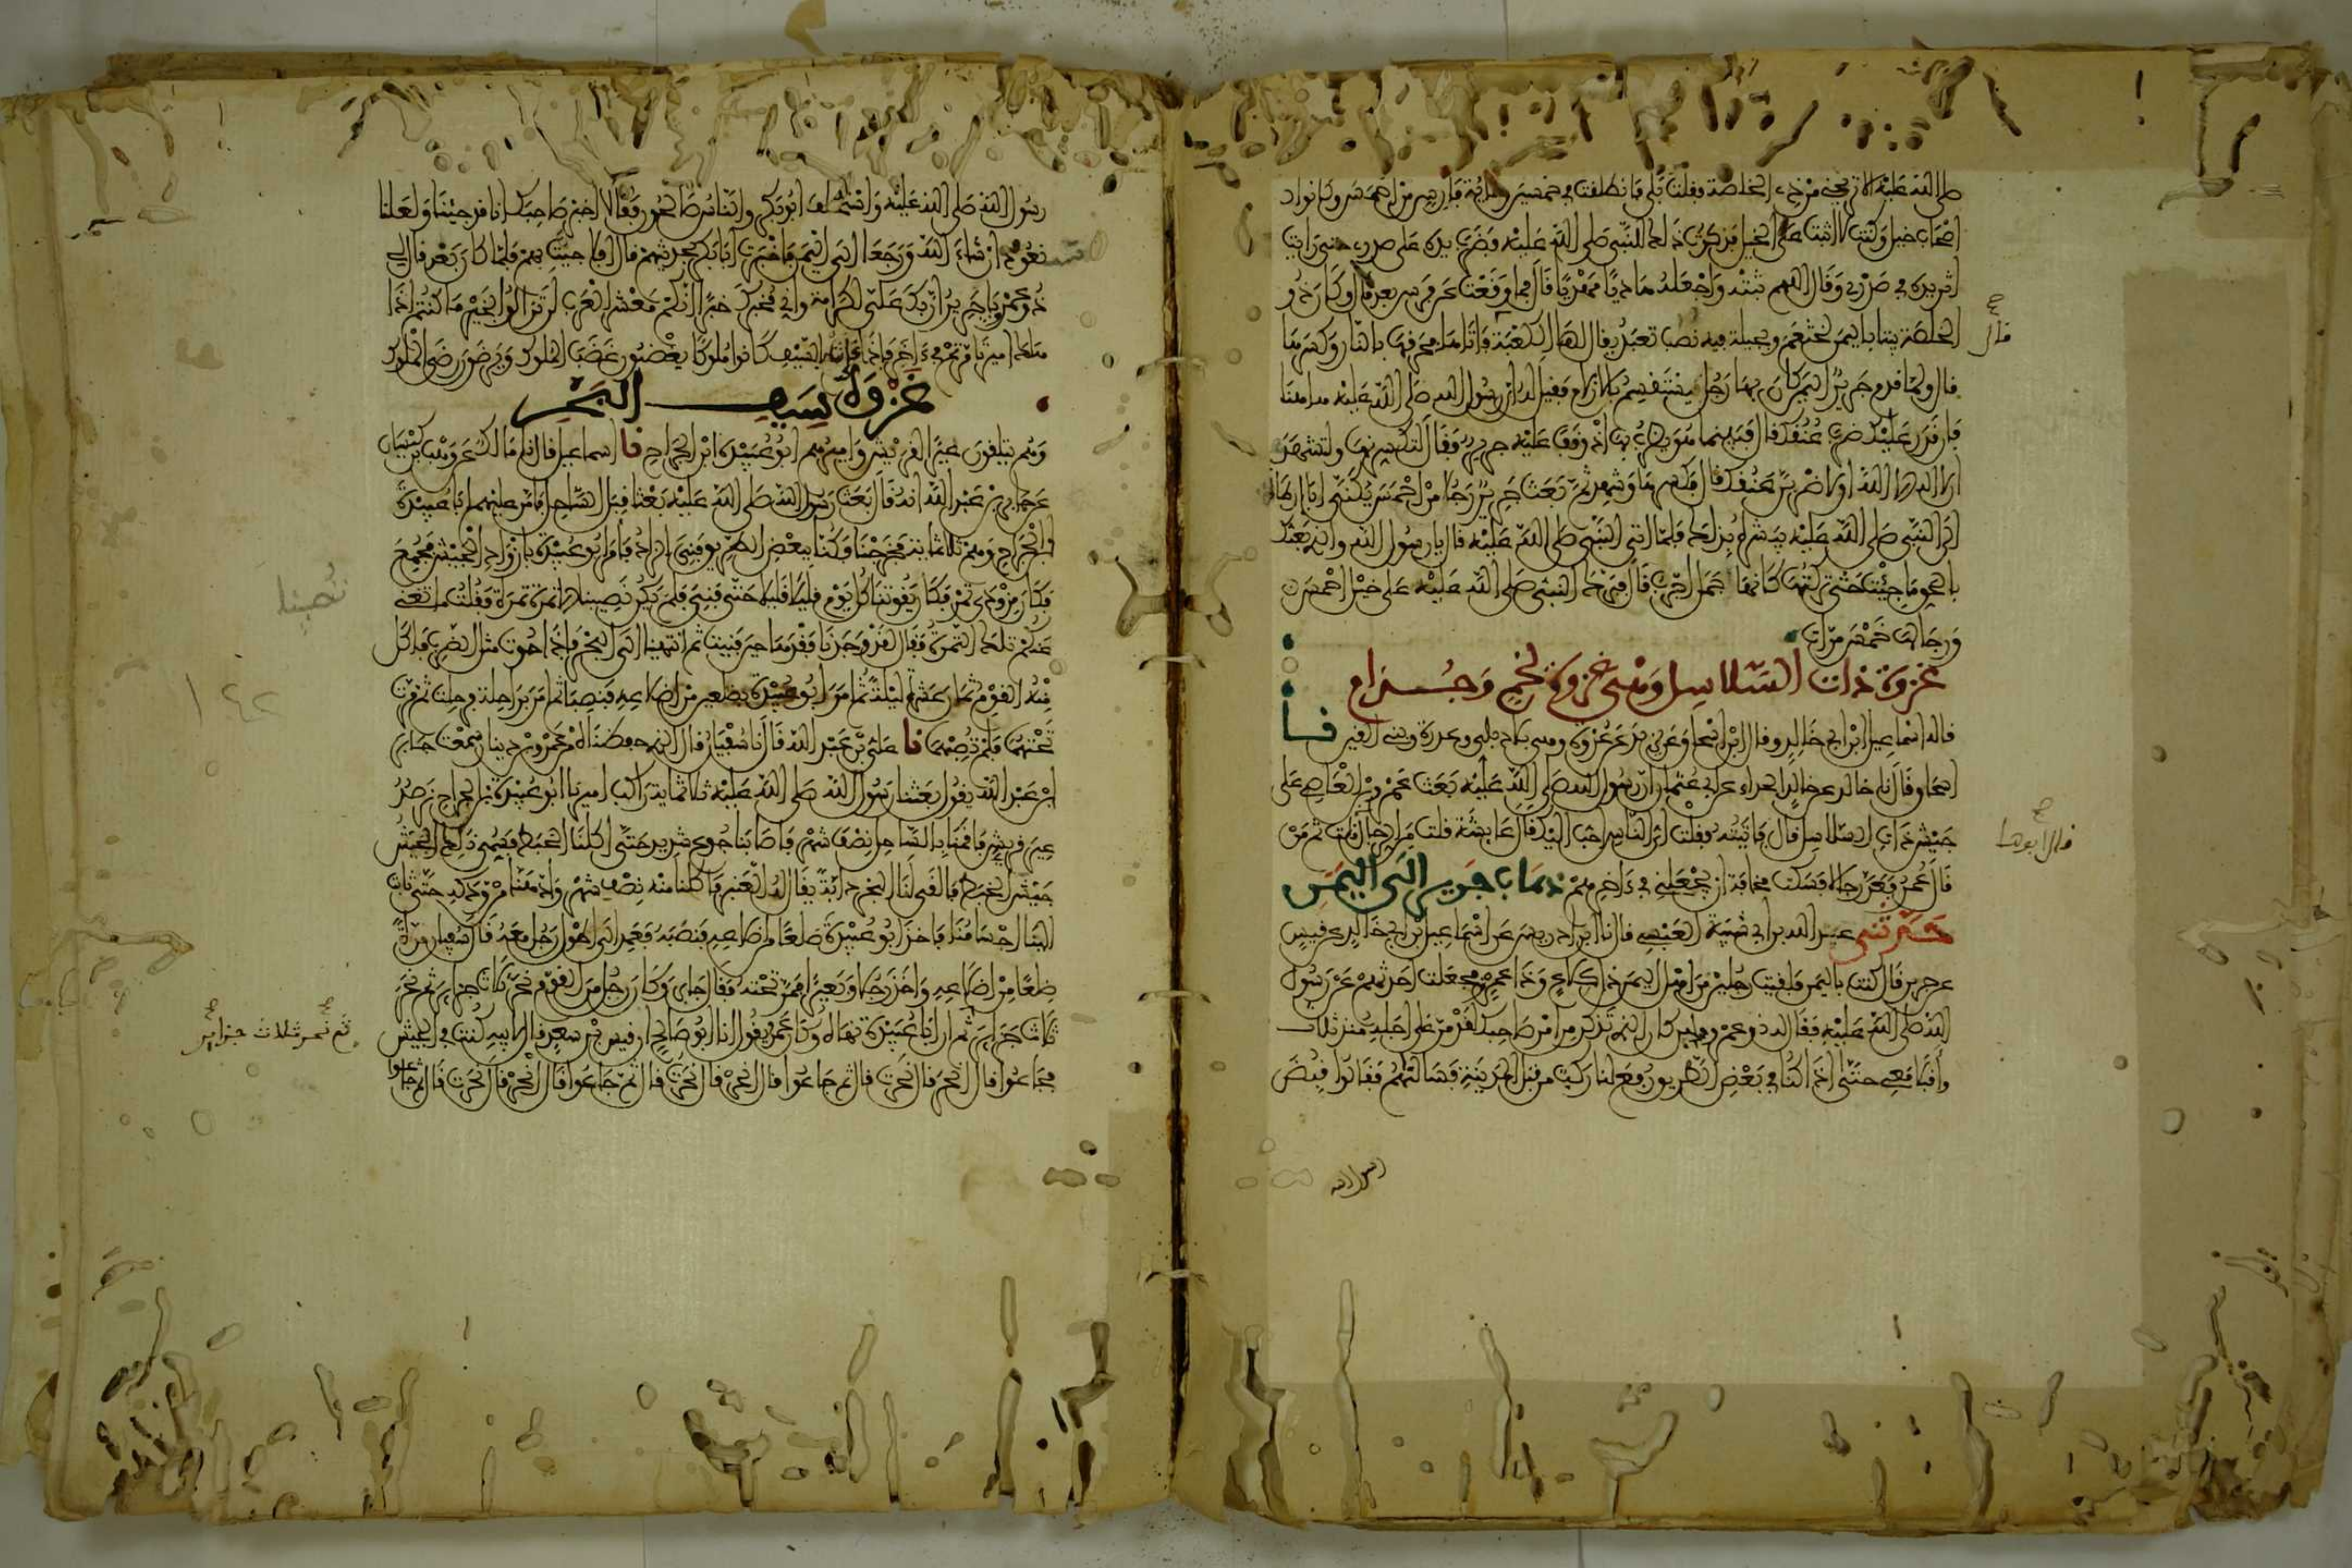 صلى الله عليه ألا تريحني من ذي الخلصة فقلت بلى فانطلقت في خمسين ومائة فارس من أحمس وكانوا
أصحاب خيل وكنت لا أثبت على الخيل فذكرت ذلك للنبي صلى الله عليه فضرب يده على صدري حتى رأيت
أثر يده في صدري وقال اللهم ثبته واجعله هاديا مهديا قال فما وقعت عن فرس بعد قال وكان ذو
الخلصة بيتا باليمن لخثعم وبجيلة فيه نصب تعبد يقال لها الكعبة فأتاها فحرقها بالنار وكسرها
قال ولما قدم جرير اليمن كان بها رجل يستقسم بالأزلام فقيل له إن رسول رسول الله صلى الله عليه هاهنا
فإن قدر عليك ضرب عنقك قال فبينما هو يضرب بها إذ وقف عليه جرير فقال لتكسرنها ولتشهدن
أن لا إله إلا الله أو لأضربن عنقك قال فكسرها وشهد ثم بعث جرير رجلا من أحمس يكنى أبا أرطاة
إلى النبي صلى الله عليه يبشره بذلك فلما أتى النبي صلى الله عليه قال يا رسول الله والذي بعثك
بالحق ما جئت حتى تركتها كأنها جمل أجرب قال فبرك النبي صلى الله عليه على خيل أحمس
ورجالها خمس مرات
غزوة ذات السلاسل وهي غزوة لخم وجذام
قاله إسماعيل ابن أبي خالد وقال ابن إسحاق عن يزيد عن عروة وهي بلاد بلي وعذرة وبني القين نا
إسحاق قال نا خالد عن خالد الحذاء عن أبي عثمان أن رسول الله صلى الله عليه بعث عمرو بن العاص على
جيش ذات السلاسل قال فأتيته فقلت أي الناس أحب إليك قال عائشة قلت من الرجال قلت ثم من
قال عمر فعد رجالا فسكت مخافة أن يجعلني في آخرهم ذهاب جرير إلى اليمن
حدثني عبد الله بن أبي شيبة العبسي قال نا ابن إدريس عن إسماعيل بن أبي خالد عن قيس
عن جرير قال كنت باليمن فلقيت رجلين من أهل اليمن ذا كلاع وذا عمرو فجعلت أحدثهم عن رسول
الله صلى الله عليه فقال له ذو عمرو ولئن كان الذي تذكر من أمر صاحبك لقد مر على أجله منذ ثلاث
وأقبلا معي حتى إذا كنا في بعض الطريق رفع لنا ركب من قبل المدينة فسألناهم فقالوا قبض
رسول الله
قال
قال أبوها
رسول الله صلى الله عليه واستخلف أبو بكر والناس صالحون فقالا أخبر صاحبك أنا قد جئنا ولعلنا
سنعود إن شاء الله ورجعا إلى اليمن فأخبرت أبا بكر بحديثهم قال أفلا جئت بهم فلما كان بعد قال لي
ذو عمرو يا جرير إن بك علي كرامة وإني مخبرك خبرا إنكم معشر العرب لن تزالوا بخير ما كنتم إذا
هلك أمير تأمرتم في آخر فإذا كانت بالسيف كانوا ملوكا يغضبون غضب الملوك ويرضون رضى الملوك
غزوة سيف البحر
وهم يتلقون عيرا لقريش وأميرهم أبو عبيدة ابن الجراح نا إسماعيل قال نا مالك عن وهب بن كيسان
عن جابر بن عبد الله أنه قال بعث رسول الله صلى الله عليه بعثا قبل الساحل فأمر عليهم أبا عبيدة
ابن الجراح وهم ثلاثمائة فخرجنا وكنا ببعض الطريق فني الزاد فأمر أبو عبيدة بأزواد الجيش فجمع
فكان مزودي تمر فكان يقوتنا كل يوم قليلا قليلا حتى فني فلم يكن نصيبنا إلا تمرة تمرة فقلت ما تغني
عنكم تلك التمرة فقال لقد وجدنا فقدها حين فنيت ثم انتهينا إلى البحر فإذا حوت مثل الظرب فأكل
منه القوم ثمان عشرة ليلة ثم أمر أبو عبيدة بضلعين من أضلاعه فنصبا ثم أمر براحلة فرحلت ثم مرت
تحتهما فلم تصبهما نا علي بن عبد الله قال نا سفيان قال الذي حفظناه من عمرو بن دينار سمعت جابر
ابن عبد الله يقول بعثنا رسول الله صلى الله عليه ثلاثمائة راكب أميرنا أبو عبيدة بن الجراح نرصد
عير قريش فأقمنا بالساحل نصف شهر فأصابنا جوع شديد حتى أكلنا الخبط فسمي ذلك الجيش
جيش الخبط فألقى لنا البحر دابة يقال لها العنبر فأكلنا منه نصف شهر وادهنا من ودكه حتى ثابت
إلينا أجسامنا فأخذ أبو عبيدة ضلعا من أضلاعه فنصبه فعمد إلى أطول رجل معه قال سفيان مرة
ضلعا من أضلاعه وأخذ رجلا وبعيرا فمر تحته فقال جابر وكان رجل من القوم نحر ثلاث جزائر ثم نحر
ثلاث جزائر ثم إن أبا عبيدة نهاه وكان عمرو يقول أنا أبو صالح أن قيس بن سعد قال لأبيه كنت في الجيش
فجاعوا قال انحر قال نحرت قال ثم جاعوا قال انحر قال نحرت قال ثم جاعوا قال انحر قال نحرت قال ثم جاعوا
نصيبنا
١٤٢
ثم نحر ثلاث جزاير